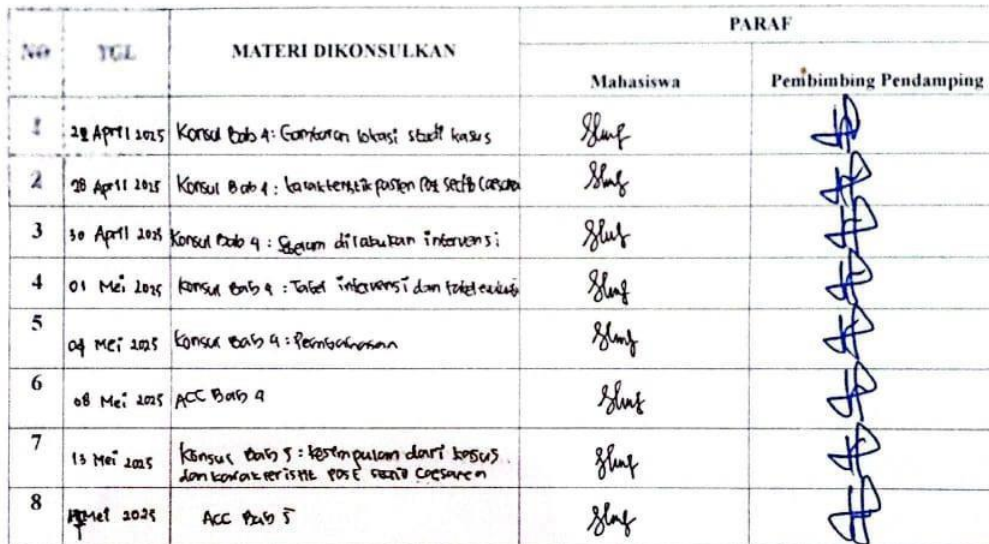 NO TGL MATERI DIKONSULKAN PARAF
Mahasiswa Pembimbing Pendamping
1 April 2025 Konsul Bab 4: Gambaran lokasi studi kasus
2 28 April 2025 Konsul Bab 4: karakteristik pasien Post Sectio Caesarea
3 30 April 2025 Konsul Bab 4 : Sebelum dilakukan intervensi
4 01 Mei 2025 Konsul Bab 4 : Tabel intervensi dan tabel
5 Mei 2025 Konsul Bab 4 : Pembahasan
6 08 Mei 2025 ACC Bab 4
7 13 Mei 2025 Konsul Bab 5 : kesimpulan dari kasus
dan karakteristik Post sectio Caesarea
8 Mei 2025 ACC Bab 5